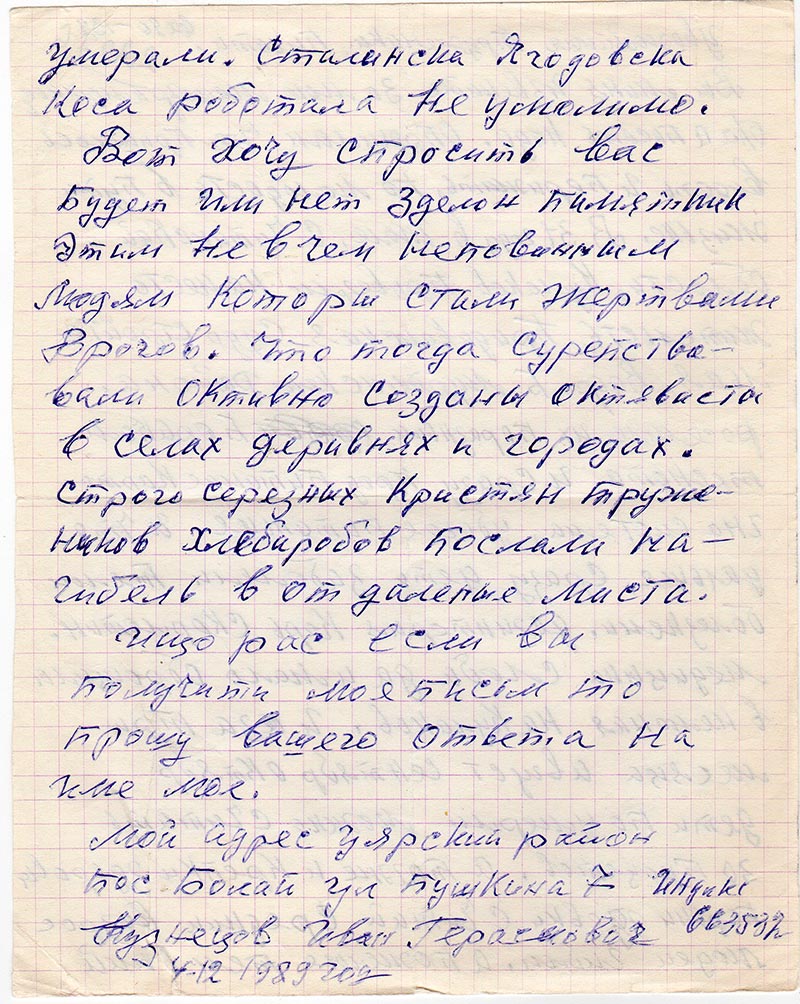 умерали. Сталинска Ягодовска
Коса роботала Не умолимо.
Вот хочу спросить вас
Будет или нет Зделон Памятник
Этим Не в чем Неповинным
Людям Которы стали Жертвами
Врогов. Что тогда Сурепство-
вали Октивно Созданы Октявисты
в селах деривнях и городах.
Строго серезных Кристян тружо-
ников Хлебиробов Послали На-
гибель в отдаленые миста.
Ищо рас если вы
Получити мое Писмо то
Прошу вашего ответа На
име мое.
Мой адрес Уярский район
Пос Болай ул Пушкина 7 Индикс
663532
Кузнецов Иван Герасмович
4-12 1989 год